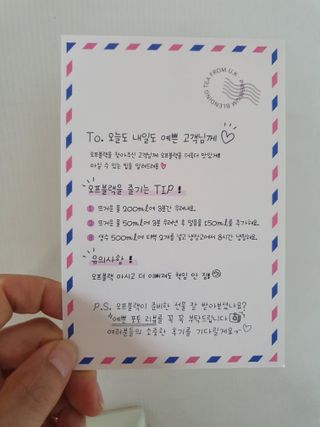 TEA FROM U.K - PREMIUM BLENDING
To. 오늘도 내일도 예쁜 고객님께
오프블랙을 찾아주신 고객님께 오프블랙을 더욱더 맛있게
마실 수 있는 팁을 알려드려요
오프블랙을 즐기는 TIP!
1 뜨거운 물 200ml에 3분간 우려내요.
2 뜨거운 물 50ml에 3분 우려낸 후 얼음물 150ml를 추가해요.
3 생수 500ml에 티백 2개를 넣고 냉장고에서 8시간 냉침해요.
유의사항!
오프블랙 마시고 더 이뻐져도 책임 안 짐!
P.S. 오프블랙이 준비한 선물 잘 받아보셨나요?
예쁜 포토 리뷰를 꼭 꼭 부탁드립니다
여러분들의 소중한 후기를 기다릴게요~